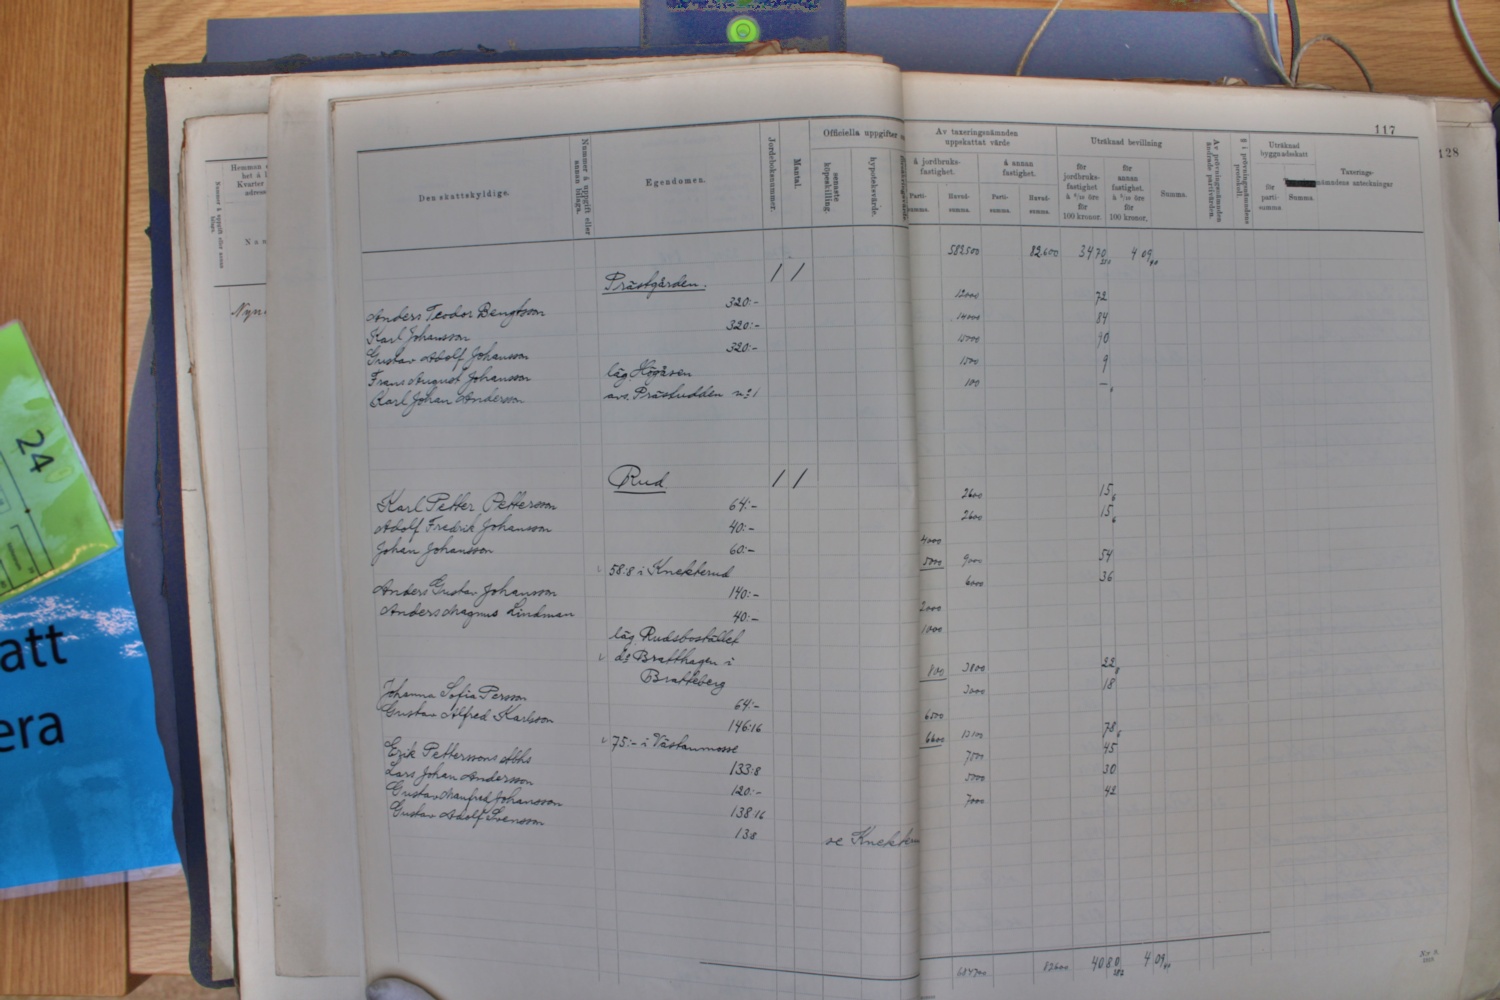 117
128
Den skattskyldige.
Nummer å uppgift eller annan bilaga.
Egendomen.
Jordeboksnummer.
Mantal.
Officiella uppgifter
senaste köpeskilling.
hypoteksvärde.
Av taxeringsnämnden uppskattat värde
å jordbruksfastighet.
å annan fastighet.
Parti-summa.
Huvud-summa.
Parti-summa.
Huvud-summa.
Uträknad bevillning
för jordbruksfastighet à 6/10 öre för 100 kronor.
för annan fastighet. à 5/10 öre för 100 kronor.
Summa.
Av prövningsnämnden ändrade partivärden.
§ i prövningsnämndens protokoll.
Uträknad byggnadsskatt
för parti-summa
Summa.
Taxeringsnämndens anteckningar
583,500 82,600 3470 409
Prästgården. / /
Anders Teodor Bengtsson 320:- 12000 72
Karl Johansson 320:- 14000 84
Gustav Adolf Johansson 320:- 15000 90
Frans August Johansson läg Högåsen 1500 9
Karl Johan Andersson avs. Prästudden n:o 1 100 -
Rud / /
Karl Petter Pettersson 64:- 2600 15
Adolf Fredrik Johansson 40:- 2600 15
Johan Johansson 60:- 4000
58:8 i Knekterud 5000 9000 54
Anders Gustav Johansson 140:- 6000 36
Anders Magnus Lindman 40:- 2000
läg Rudsbostället 1000
d:o Bratthagen i
Bratteberg 800 3800 22
Johanna Sofia Persson 64:- 3000 18
Gustav Alfred Karlsson 146:16 6500
75:- i Västanmosse 6600 13100 78
Erik Petterssons Stbhs 133:8 7500 45
Lars Johan Andersson 120:- 5000 30
Gustav Manfred Johansson 138:16 7000 42
Gustav Adolf Svensson 13:8 se Knekteru
82600 4080 409
Nr 8.
Hemman
Kvarter
Nam
24
att
era